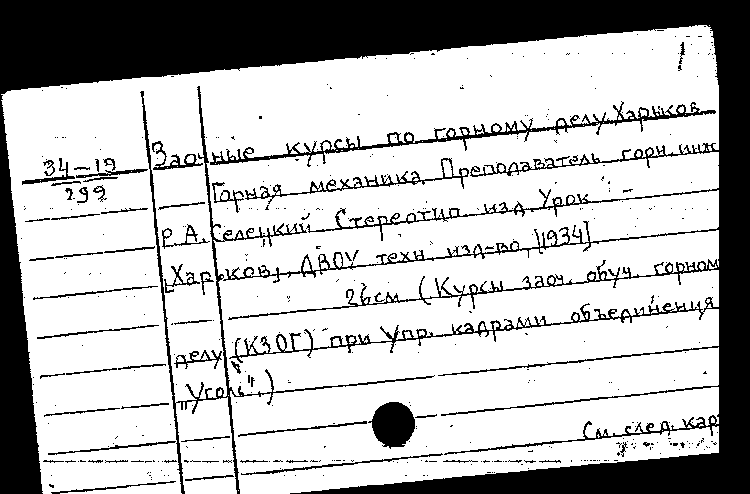 1
34-19
299
Заочные курсы по горному делу. Харьков
Горная механика. Преподаватель горн. инж
Р. А. Селецкий Стереотип. изд. Урок -
[Харьков], ДВОУ техн. изд-во, [1934]
26см (Курсы заоч. обуч. горном
делу (КЗОГ) при Упр. кадрами объединения
"Уголь".)
См. след. кар